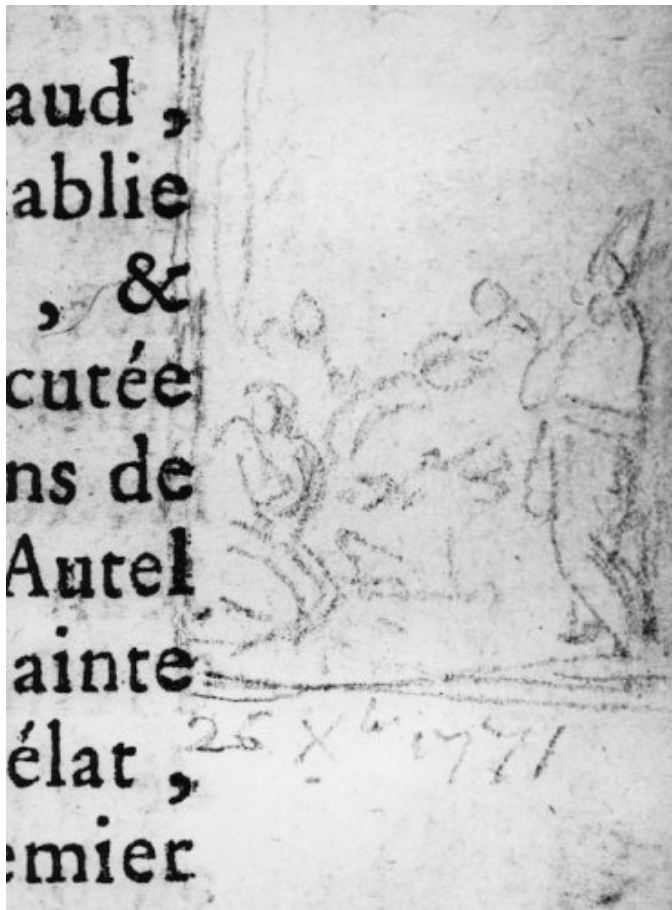 aud,
ablie
, &
cutée
ns de
Autel
ainte
élat,
emier
26 Xbre 1771